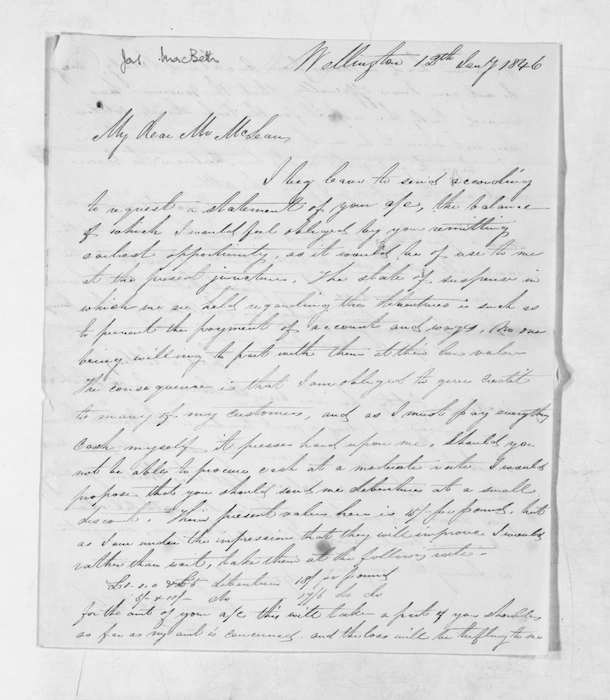 Jas. MacBeth
Wellington 12th Jany 1846
My dear Mr McLean,
I beg leave to send according
to request a statement of your a/c, the balance
of which I would feel obliged by your remitting
earliest opportunity, as it would be of use to me
at the present juncture. The state of suspense in
which we are held regarding the debentures is such as
to prevent the payment of accounts and wages, no one
being willing to part with them at their low value
The consequence is that I am obliged to give credit
to many of my customers, and as I must pay everything
Cash myself it presses hard upon me. Should you
not be able to procure cash at a moderate rate I would
propose that you should send me debentures at a small
discount. Their present value here is per pound, but
as I am under the impression that they will improve I would
rather than wait, take them at the following rate.
debentures 18/ per pound
5/- & 10/- do 17/6 do do
for the amt of your a/c this will take a part of your shoulders
as far as my amt is concerned, and the loss will be trifling to me